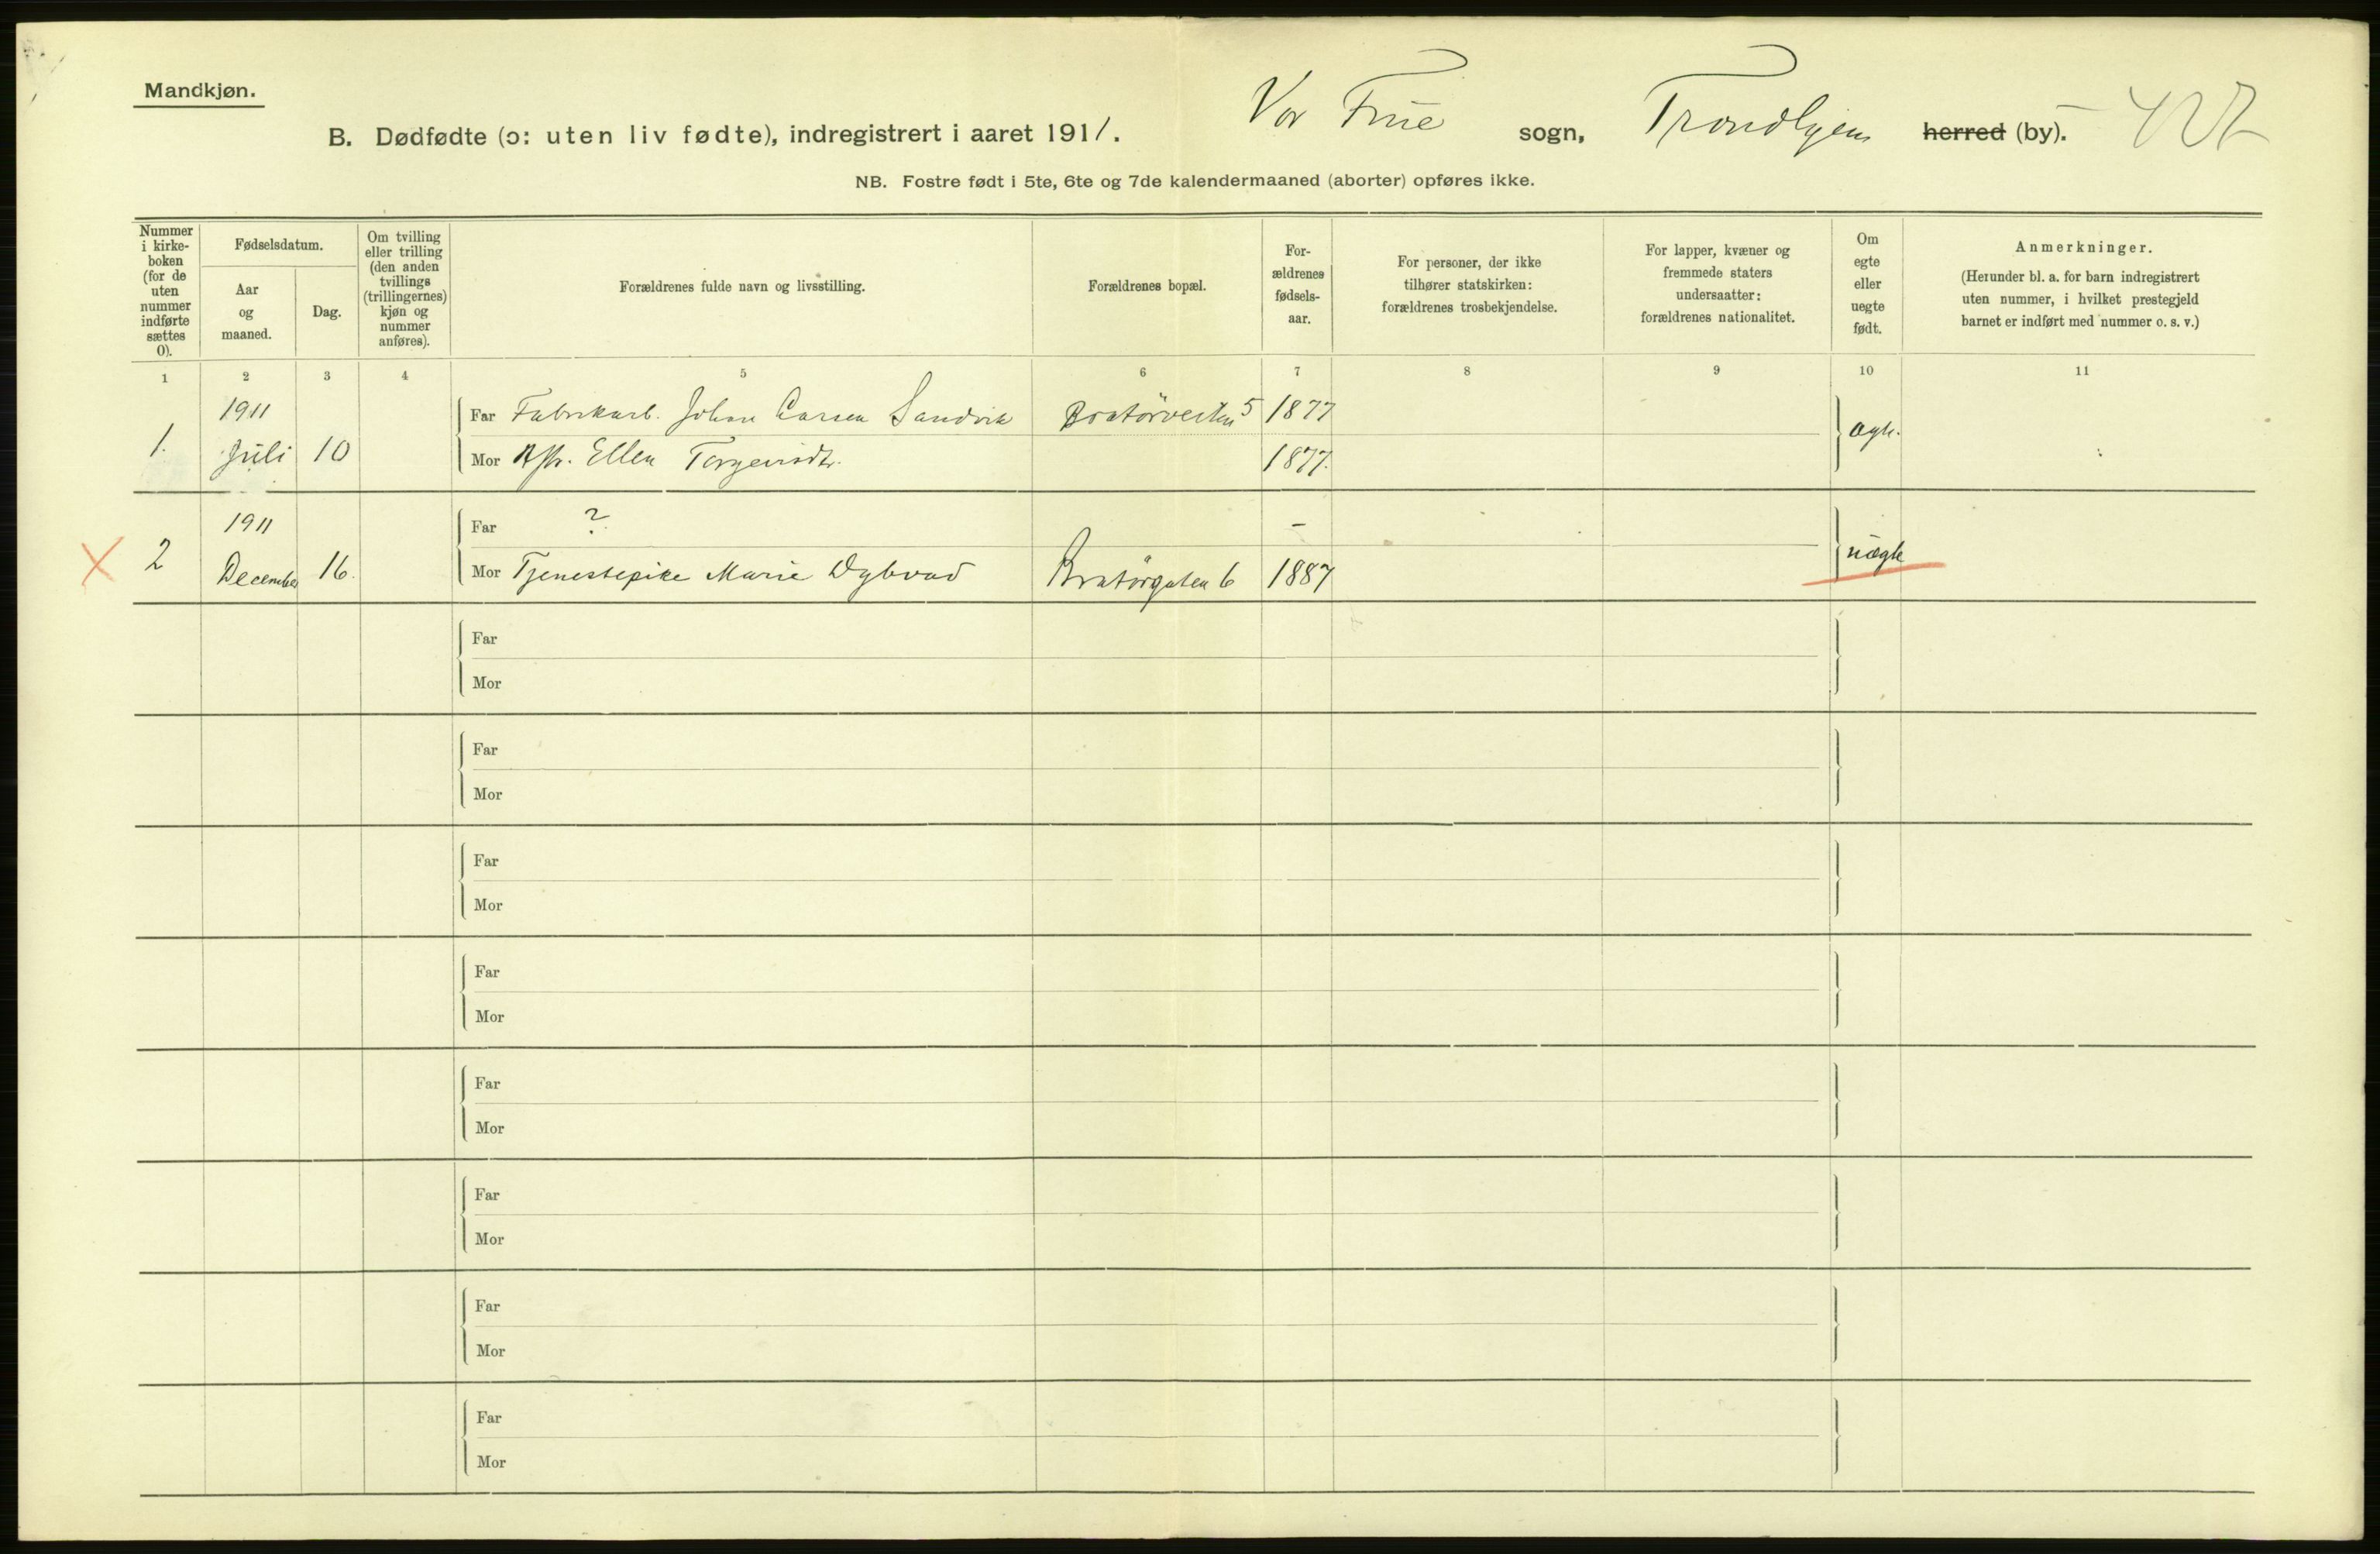 Mandkjøn.
B. Dødfødte (ɔ: uten liv fødte), indregistrert i aaret 1911. Vor Frue sogn, Trondhjem herred (by).
NB. Fostre født i 5te, 6te og 7de kalendermaaned (aborter) opføres ikke.
Nummer
i kirke-
boken
(for de
uten
nummer
indførte
sættes
0).
Fødselsdatum.
Aar
og
maaned.
Dag.
Om tvilling
eller trilling
(den anden
tvillings
(trillingernes)
kjøn og
nummer
anføres).
Forældrenes fulde navn og livsstilling.
Forældrenes bopæl.
For-
ældrenes
fødsels-
aar.
For personer, der ikke
tilhører statskirken:
forældrenes trosbekjendelse.
For lapper, kvæner og
fremmede staters
undersaatter:
forældrenes nationalitet.
Om
egte
eller
uegte
født.
Anmerkninger.
(Herunder bl. a. for barn indregistrert
uten nummer, i hvilket prestegjeld
barnet er indført med nummer o. s. v.)
1 2 3 4 5 6 7 8 9 10 11
1911
Far Fabrikarb. Johan Larsen Sandvik 5 1877
1. Juli 10 ægte.
Mor Ellen 1877.
1911
Far ? –
2 December 16. uægte
Mor Tjenestepike Marie Dybvad Bratörgaten 6 1887
Far
Mor
Far
Mor
Far
Mor
Far
Mor
Far
Mor
Far
Mor
Far
Mor
Far
Mor